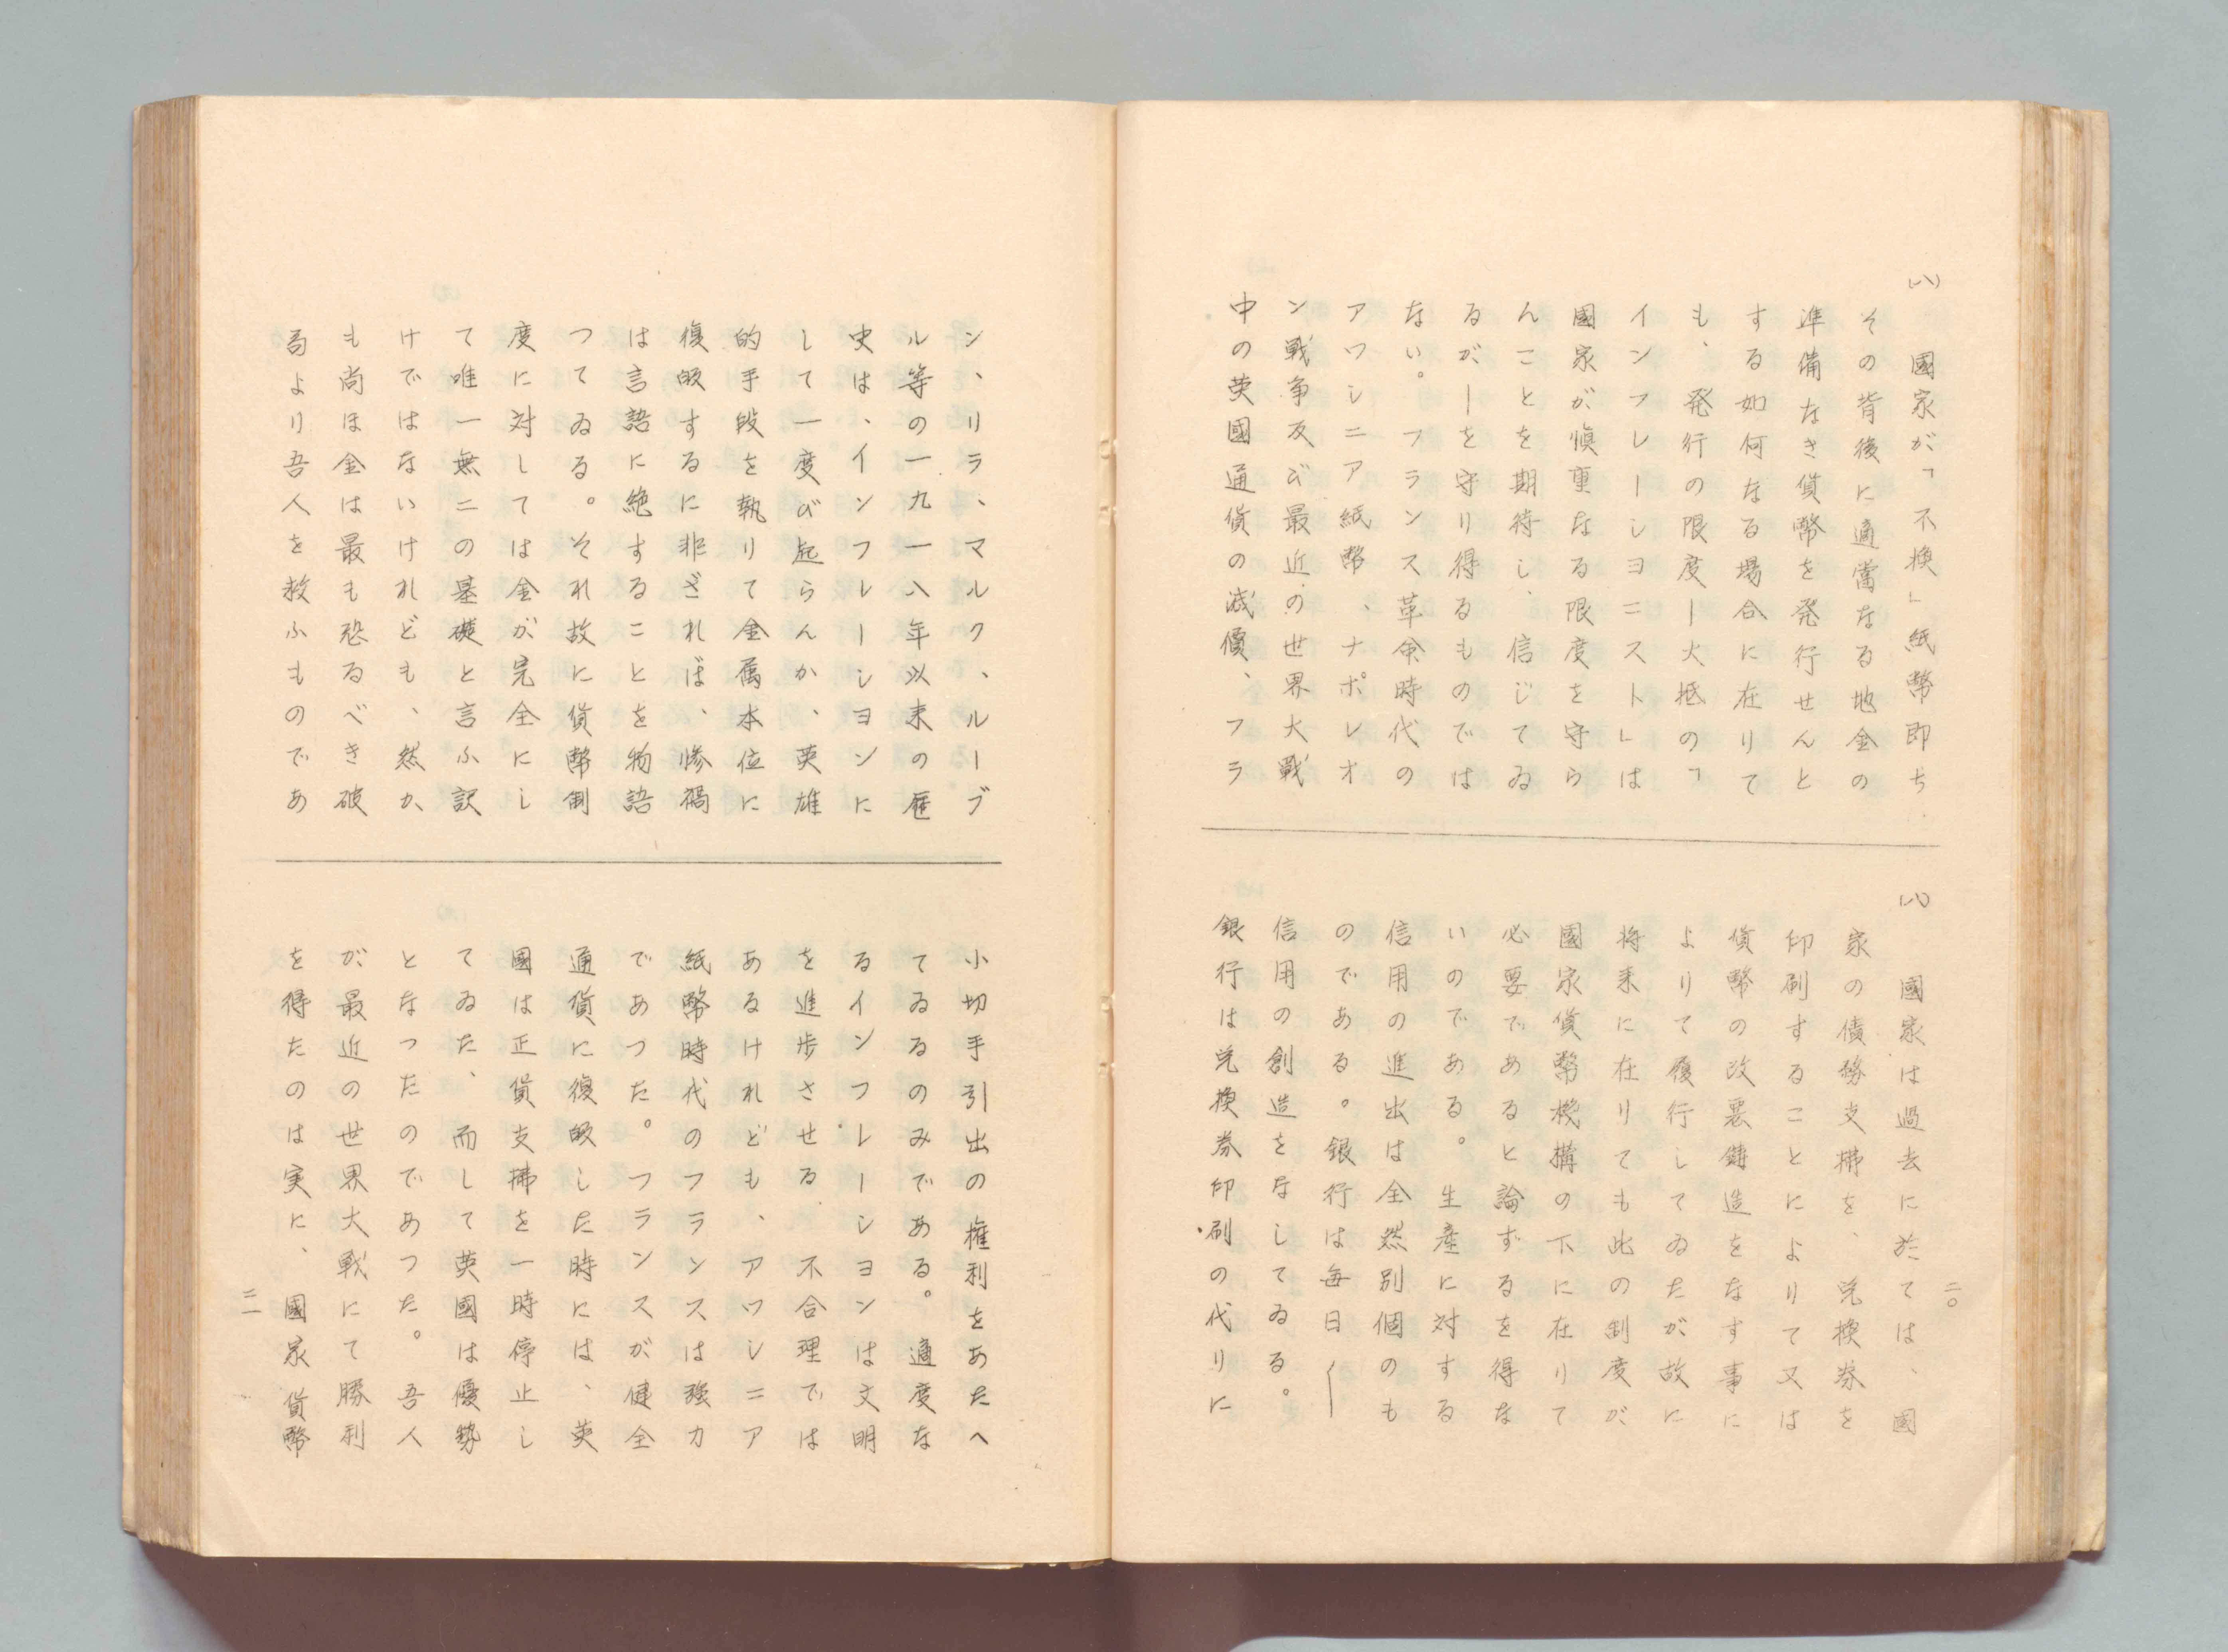 (八)
國家が「不換」紙幣即ち
その背後に適當なる地金の
準備なき貨幣を発行せんと
する如何なる場合に在りて
も、発行の限度ー大抵の「
インフレーシヨニスト」は
國家が愼重なる限度を守ら
んことを期待し、信じてゐ
るがーを守り得るものでは
ない。フランス革命時代の
アツシニア紙幣、ナポレオ
ン戦争及び最近の世界大戦
中の英國通貨の減價、フラ
二〇
(八)
國家は過去に於ては、國
家の債務支拂を、兌換券を
印刷することによりて又は
貨幣の改悪鋳造をなす事に
よりて履行してゐたが故に
将来に在りても此の制度が
國家貨幣機構の下に在りて
必要であると論ずるを得な
いのである。生産に対する
信用の進出は全然別個のも
のである。銀行は毎日〳〵
信用の創造をなしてゐる。
銀行は兌換券印刷の代りに
ン、リラ、マルク、ルーブ
ル等の一九一八年以来の歴
史は、インフレーシヨンに
して一度び起らんか、英雄
的手段を執りて金属本位に
復皈するに非ざれば、惨禍
は言語に絶することを物語
つてゐる。それ故に貨幣制
度に対しては金が完全にし
て唯一無二の基礎と言ふ訳
けではないけれども、然か
も尚ほ金は最も恐るべき破
局より吾人を救ふものであ
小切手引出の権利をあたへ
てゐるのみである。適度な
るインフレーシヨンは文明
を進歩させる、不合理では
あるけれども、アツシニア
紙幣時代のフランスは強力
であつた。フランスが健全
通貨に復皈した時には、英
國は正貨支拂を一時停止し
てゐた、而して英國は優勢
となつたのであつた。吾人
が最近の世界大戦にて勝利
を得たのは実に、國家貨幣
二一